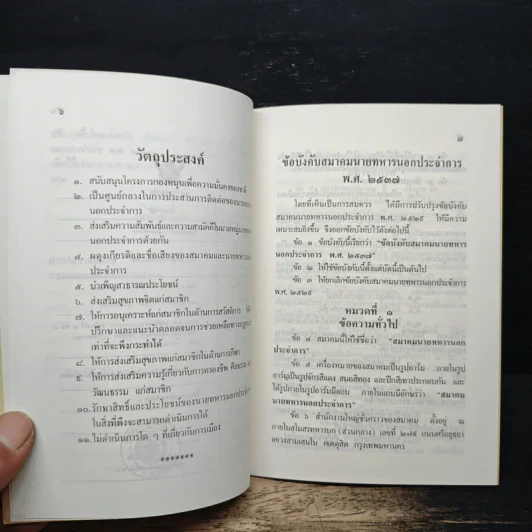 ๖
วัตถุประสงค์
๑. สนับสนุนโครงการกองหนุนเพื่อความมั่นคงของชาติ
๒. เป็นศูนย์กลางในการประสานการติดต่อของนายทหาร
นอกประจำการ
๓. ส่งเสริมความสัมพันธ์และความสามัคคีในมวลหมู่นายทหาร
นอกประจำการด้วยกัน
๔. ผดุงเกียรติและชื่อเสียงของสมาคมและนายทหารนอก
ประจำการ
๕. บำเพ็ญสาธารณประโยชน์
๖. ส่งเสริมสุขภาพจิตแก่สมาชิก
๗. ให้การอนุเคราะห์แก่สมาชิกในด้านการสวัสดิการ ให้คำ
ปรึกษาและแนะนำตลอดจนการช่วยเหลือทางกฎหมาย
เท่าที่จะพึงกระทำได้
๘. ให้การส่งเสริมสุขภาพแก่สมาชิกในด้านการกีฬา
๙. ให้การส่งเสริมความรู้เกี่ยวกับการครองชีพ ศีลธรรม และ
วัฒนธรรม แก่สมาชิก
๑๐. รักษาสิทธิ์และประโยชน์ของนายทหารนอกประจำการ
ในสิ่งที่พึงจะสามารถดำเนินการได้
๑๑. ไม่ดำเนินการใด ๆ ที่เกี่ยวกับการเมือง
*******
๗
ข้อบังคับสมาคมนายทหารนอกประจำการ
พ.ศ. ๒๕๓๗
โดยที่เห็นเป็นการสมควร ได้มีการปรับปรุงข้อบังคับ
สมาคมนายทหารนอกประจำการ พ.ศ. ๒๕๒๙ ให้มีความ
เหมาะสมยิ่งขึ้น จึงออกข้อบังคับไว้ดังต่อไปนี้
ข้อ ๑ ข้อบังคับนี้เรียกว่า "ข้อบังคับสมาคมนายทหาร
นอกประจำการ พ.ศ. ๒๕๓๗"
ข้อ ๒ ให้ใช้ข้อบังคับนี้ตั้งแต่บัดนี้เป็นต้นไป
ข้อ ๓ ให้ยกเลิกข้อบังคับสมาคมนายทหารนอกประจำการ
พ.ศ. ๒๕๒๙
หมวดที่ ๑
ข้อความทั่วไป
ข้อ ๔ สมาคมนี้ให้ใช้ชื่อว่า "สมาคมนายทหารนอก
ประจำการ"
ข้อ ๕ เครื่องหมายของสมาคมเป็นรูปอาร์ม ภายในรูป
อาร์มเป็นรูปจักรสีแดง สมอสีทอง และปีกสีเทาประกอบกัน และ
ใต้รูปภายในรูปอาร์มมีแถบ ภายในแถบมีอักษรว่า "สมาคม
นายทหารนอกประจำการ"
ข้อ ๖ สำนักงานใหญ่ชั่วคราวของสมาคม ตั้งอยู่ ณ
ภายในสโมสรทหารบก (ส่วนกลาง) เลขที่ ๒๗๕ ถนนศรีอยุธยา
แขวงสามเสนใน เขตดุสิต กรุงเทพมหานคร